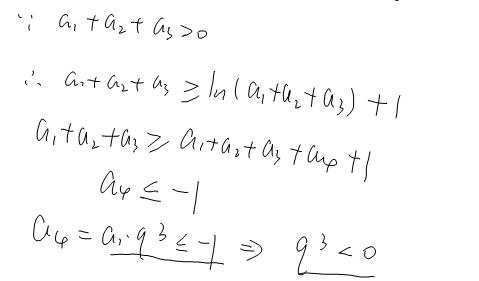 ∵ a₁+a₂+a₃>0
∴ a₁+a₂+a₃ ≥ ln(a₁+a₂+a₃)+1
a₁+a₂+a₃ ≥ a₁+a₂+a₃+a₄+1
a₄ ≤ -1
a₄ = a₁·q³ ≤ -1 ⇒ q³ < 0